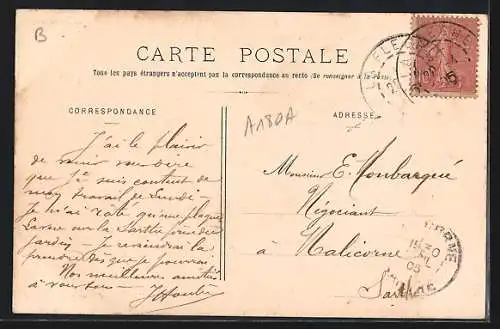 B
CARTE POSTALE
Tous les pays étrangers n'acceptent pas la correspondance au recto (Se renseigner à la
CORRESPONDANCE
ADRESSE
A180A
J'ai le plaisir
de venir
que je suis content de
mon travail de Lundi
Je n'ai râté qu'une plaque
sur la Sarthe
jardin - Je reviendrai la
prendre dès que je pourrai
Nos meilleures amitiés
à vous tous -
Monsieur E. Monbarqué
Négociant
à Malicorne
Sarthe